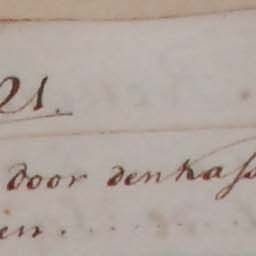 21.
door den kas
en.......